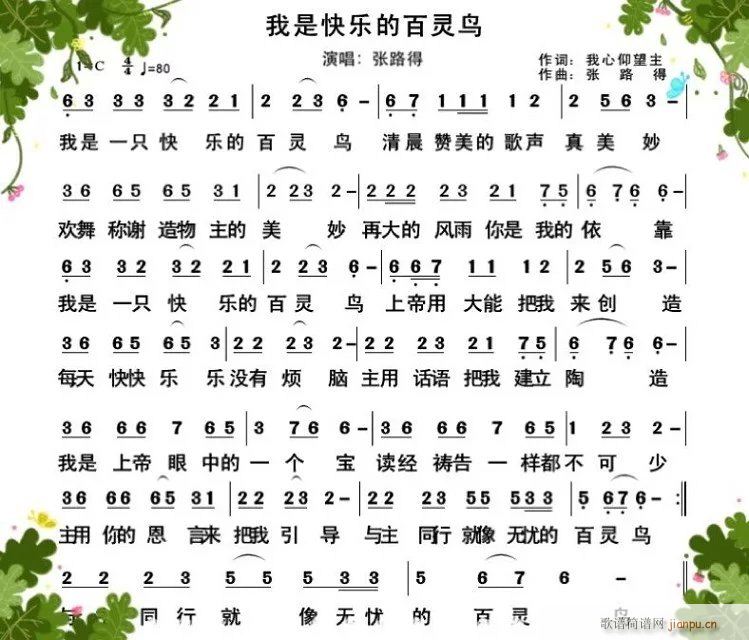 我是快乐的百灵鸟
1=C 4/4 ♩=80
演唱：张路得
作词：我心仰望主
作曲：张路得
6 3 3 3 3 2 2 1 | 2 2 3 6 - | 6 7 1 1 1 1 2 | 2 5 3 - |
我是一只快乐的百灵鸟 清晨赞美的歌声真美妙
3 6 6 5 6 5 3 1 | 2 2 3 2 - | 2 2 2 2 3 2 1 7 5 | 6 7 6 6 - |
欢舞称谢造物主的美妙 再大的风雨你是我的依靠
6 3 3 2 3 2 2 1 | 2 2 3 6 - | 6 6 7 1 1 1 2 | 2 5 6 3 - |
我是一只快乐的百灵鸟 上帝用大能把我来创造
3 6 6 5 6 5 3 1 | 2 2 2 3 2 - | 2 2 2 3 2 1 7 5 | 6 7 6 6 - |
每天快快乐乐没有烦脑 主用话语把我建立陶造
3 6 6 6 7 6 5 | 3 7 6 6 - | 2 2 2 3 2 6 5 | 1 2 3 2 - |
我是上帝眼中的一个宝 读经祷告一样都不可少
3 6 6 6 6 5 3 1 | 2 2 2 3 2 - | 2 2 2 3 5 5 5 3 3 | 5 6 7 6 - :‖
主用你的恩言来把我引导 与主同行就像无忧的百灵鸟
2 2 2 3 5 5 5 3 3 | 5 6 7 6 - ‖
同行就像无忧的百灵鸟
歌谱简谱网
www.jianpu.cn